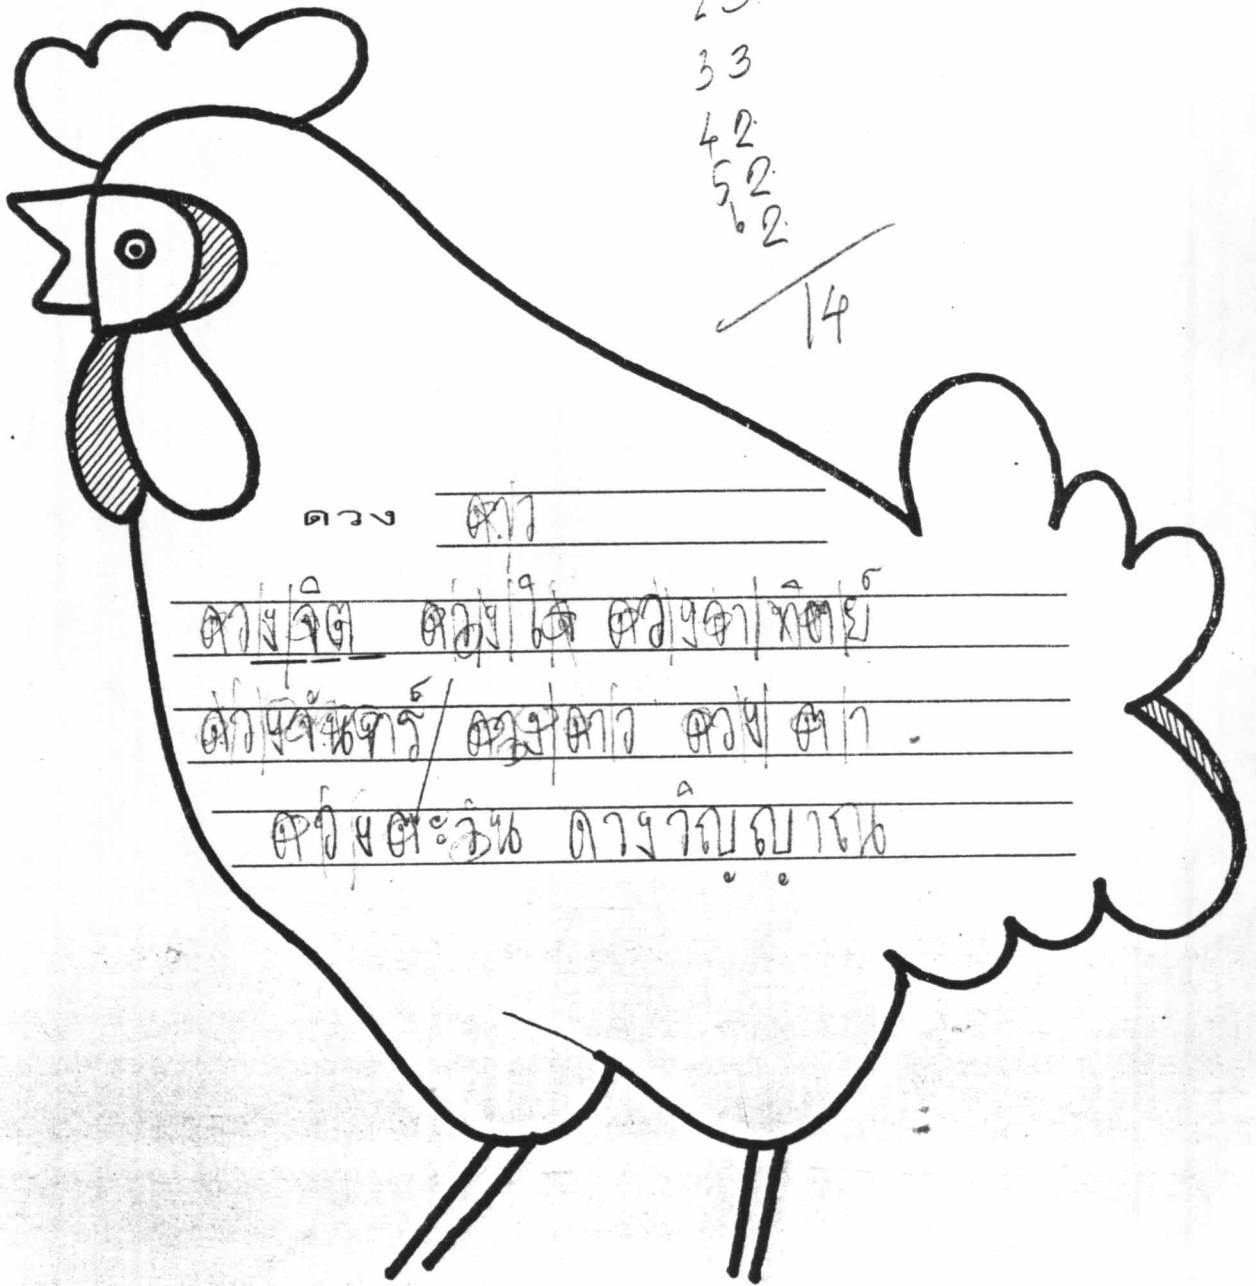 33
42
52
62
14
ดวง ดาว
ดวงจิต ดวงใจ ดวงอาทิตย์
ดวงจันทร์ ดวงดาว ดวงตา
ดวงตะวัน ดวงวิญญาณ